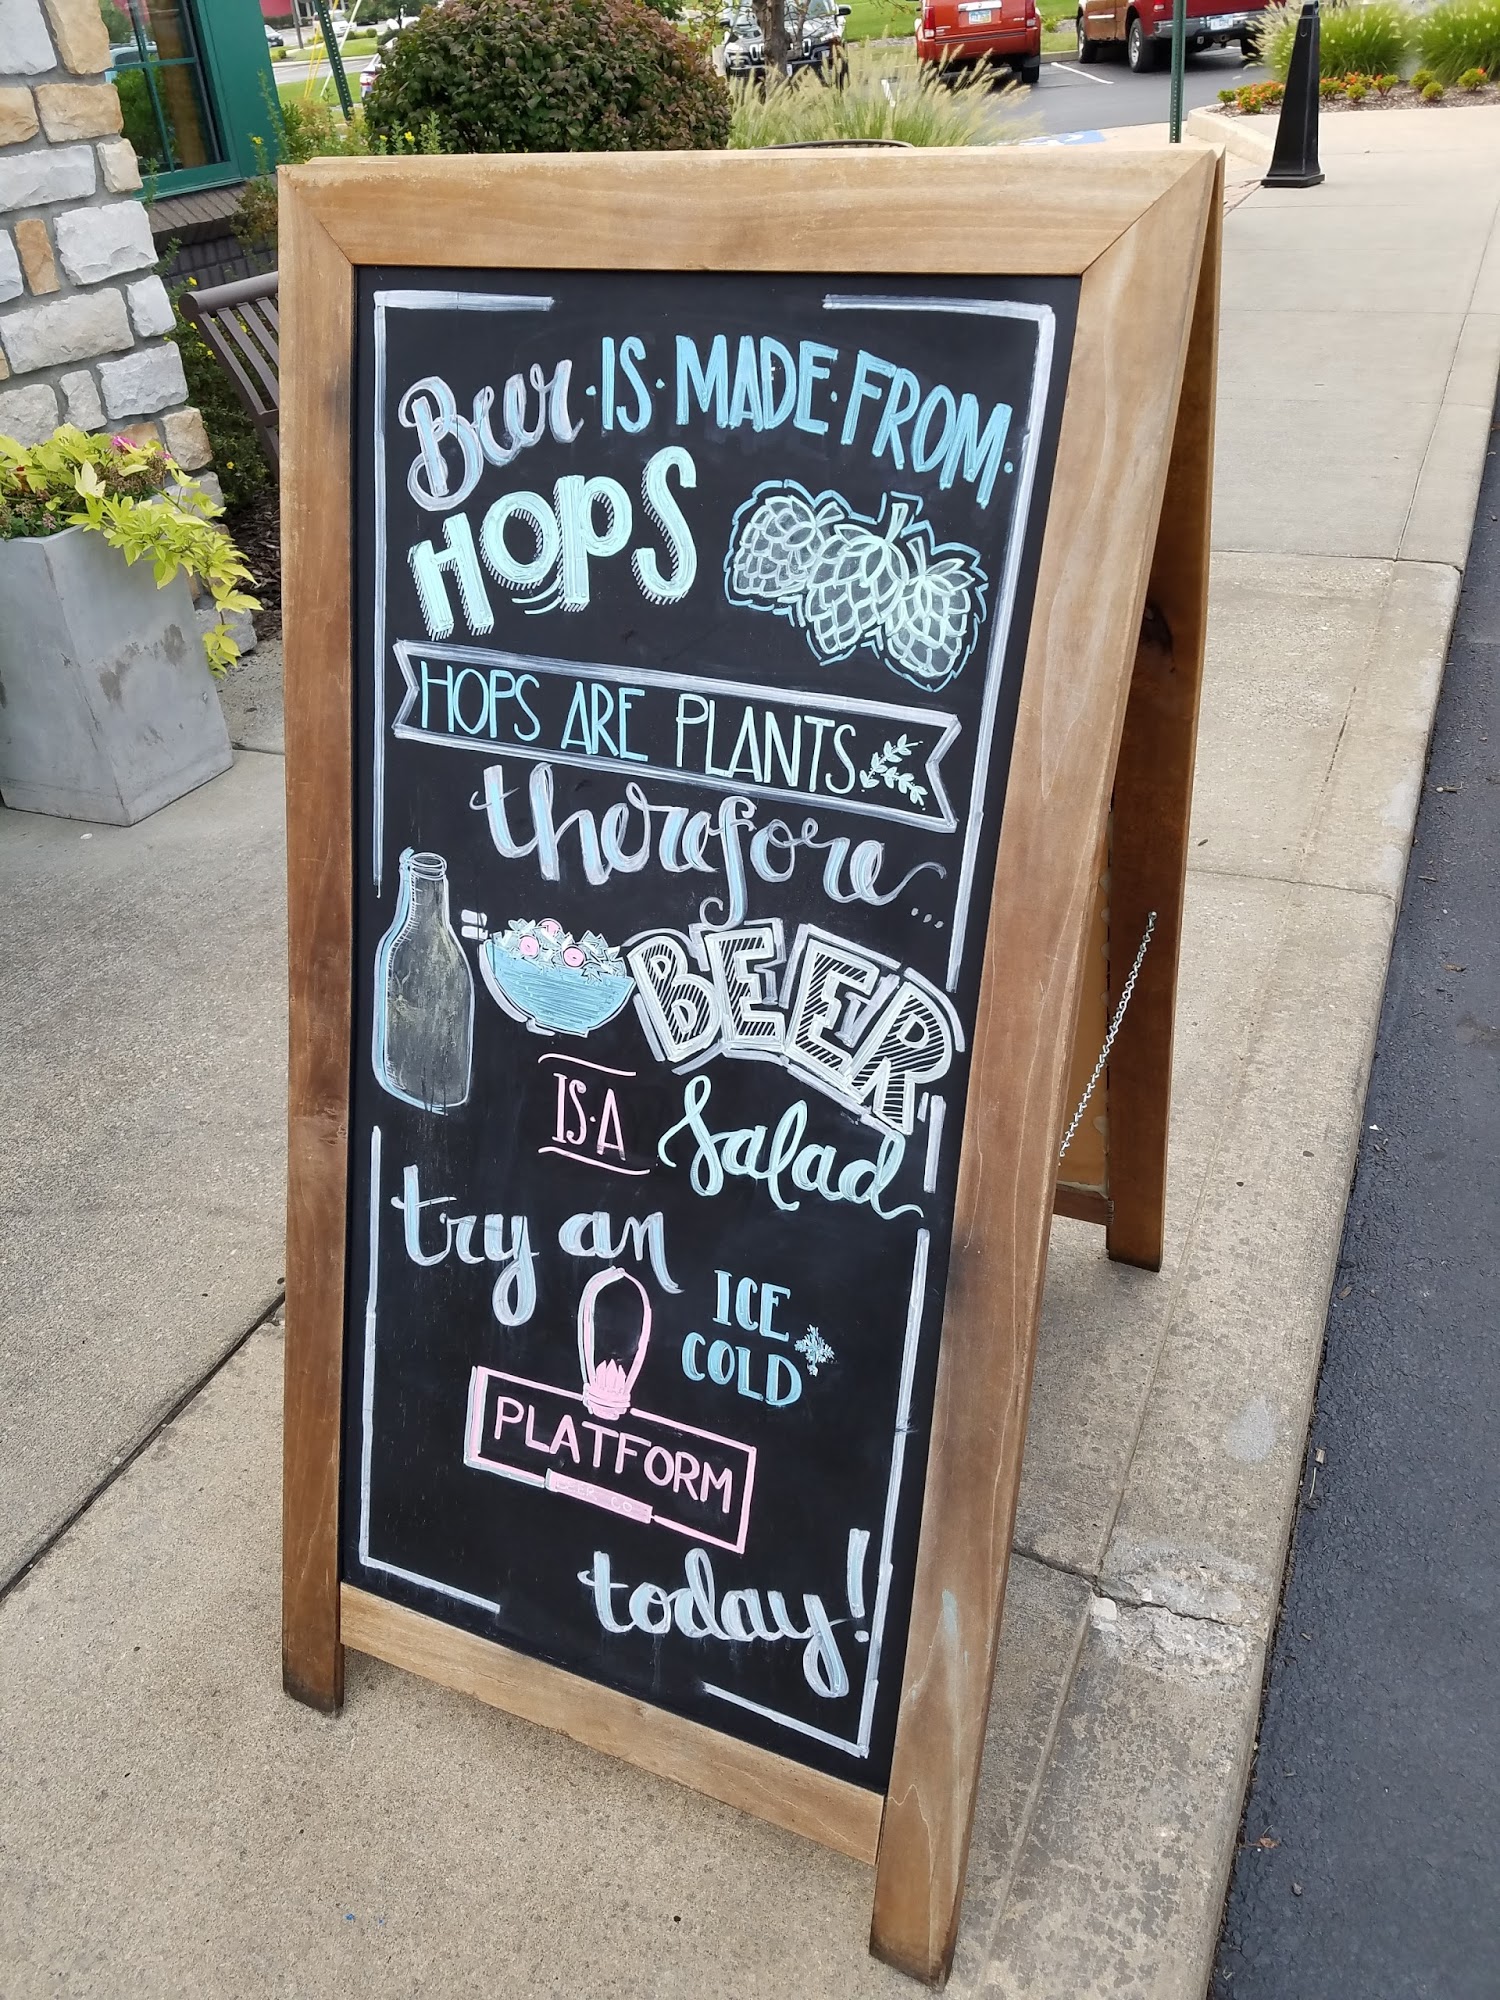 Beer · IS · MADE · FROM ·
HOPS
HOPS ARE PLANTS
therefore...
BEER
IS · A Salad
try an
ICE
COLD
PLATFORM
BEER CO
today!